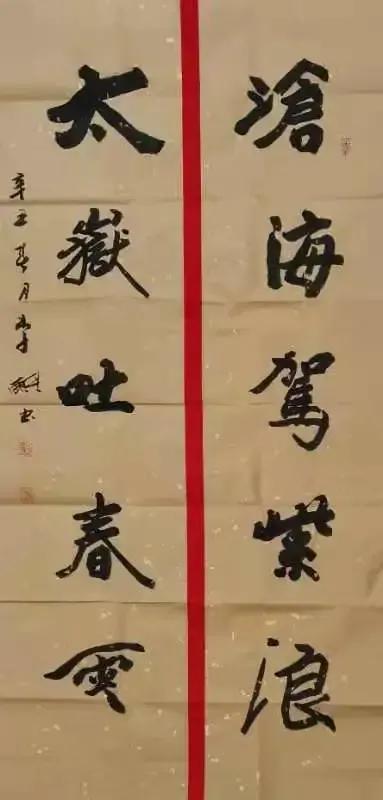 滄海駕紫浪
太嶽吐春雲
辛丑春月李书